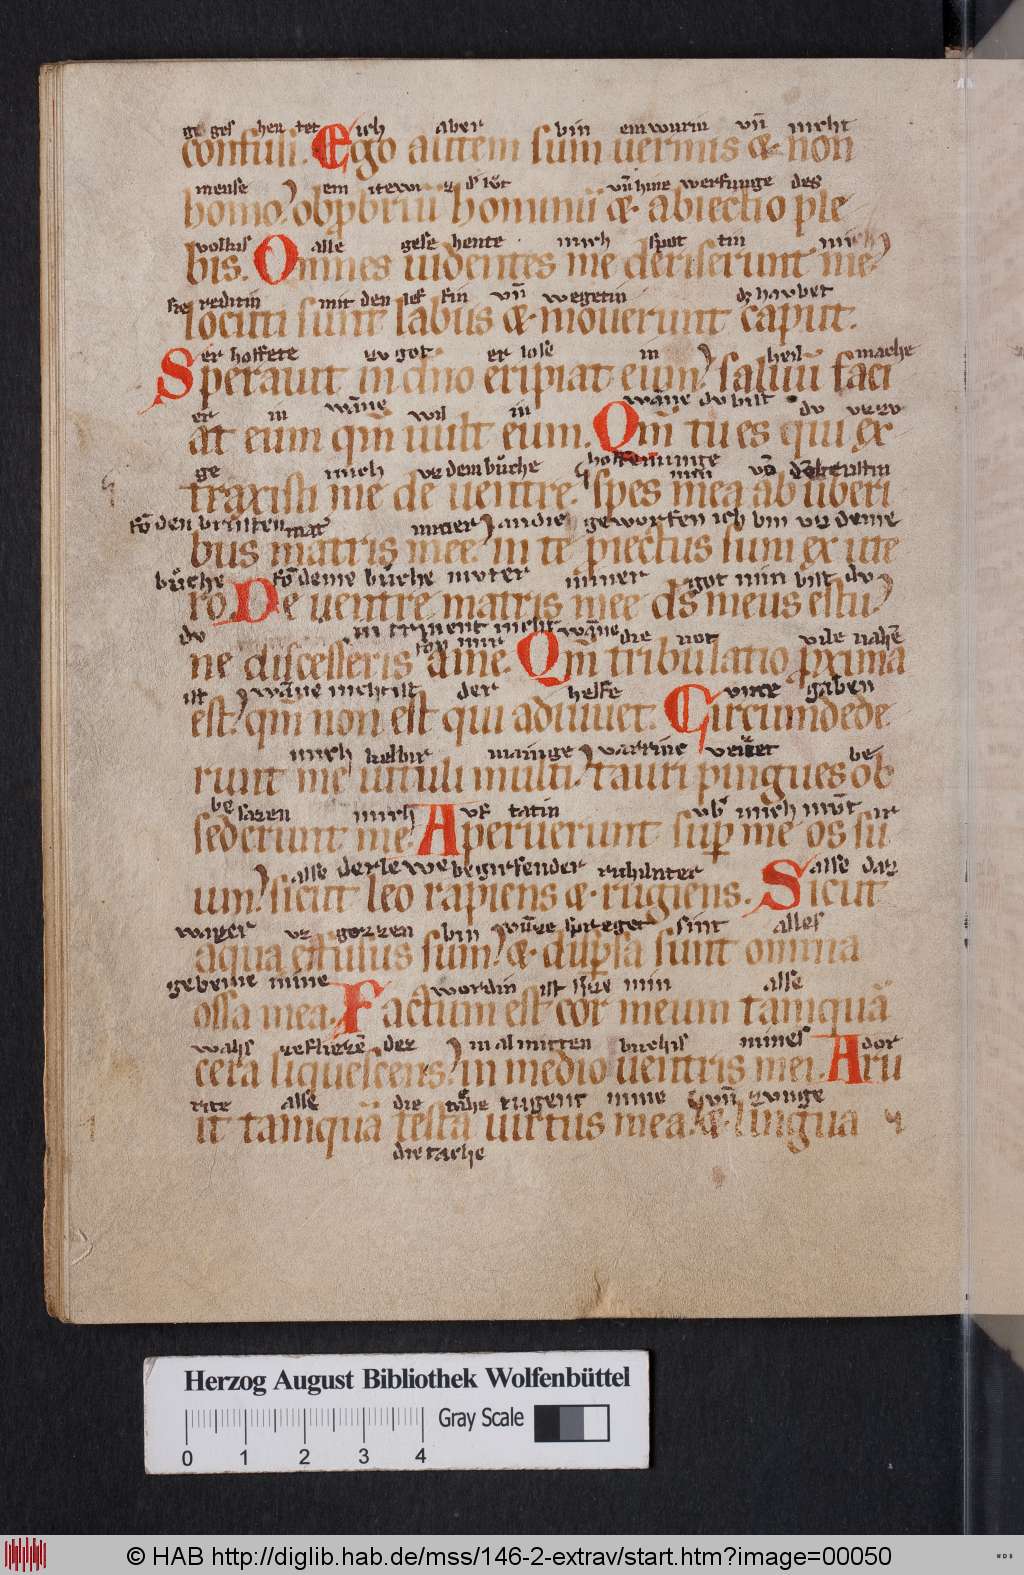 ge ges hen tet ich aber bin ein wurm vn̄ nicht
confusi. Ego autem sum uermis & non
mense ein itewiz
homo? obp̱briū hominū & abiectio ple
volkis alle gese hente mich spot tin mich
bis. Omnes uidentes me deriserunt me?
sie reditin mit den lef sin vn̄ wegetin dz haubet
locuti sunt labiis & mouerunt caput.
er hoffete zu got er lose in heil mache
Sperauit in dn̄o eripiat eum? saluū faci
er in wāne wil in wane du bist du
at eum qm̄ uult eum. Qm̄ tu es qui ex
ge mich vz dem bůche hoffenunge min
traxisti me de uentre? spes mea ab uberi
fō den brusten miner an die geworfen ich bin vz deme
bus matris mee? in te p̱iectus sum ex ute
bůche fō deme bůche muter miner got min bist du
ro. De uentre matris mee ds̄ meus es tu?
du nicht wāne die not vile nahē
ne discesseris a me. Qm̄ tribulatio p̱xima
ist wāne nicht ist der helfe vmme gaben
est? qm̄ non est qui adiuuet. Circumdede
mich kelbir maninge be
runt me uituli multi? tauri pingues ob
be sazen mich vf tatin vbˀ mich mūt ir
sederunt me? Aperuerunt sup̱ me os su
alse der lewe begirfender ruhunter alse daz
um? sicut leo rapiens & rugiens. Sicut
wazer vz gozzen bin sint alles
aqua effusus sum? & disp̱sa sunt omnia
gebeine mine wordin ist min alse
ossa mea. Factum est cor meum tamquā
wahs der in al mitten buchis mines
cera liquescens? in medio uentris mei. Aru
alse die tugent mine vn̄ zunge
it tamquā testa uirtus mea? & lingua
die tache
Herzog August Bibliothek Wolfenbüttel
Gray Scale
0 1 2 3 4
© HAB http://diglib.hab.de/mss/146-2-extrav/start.htm?image=00050